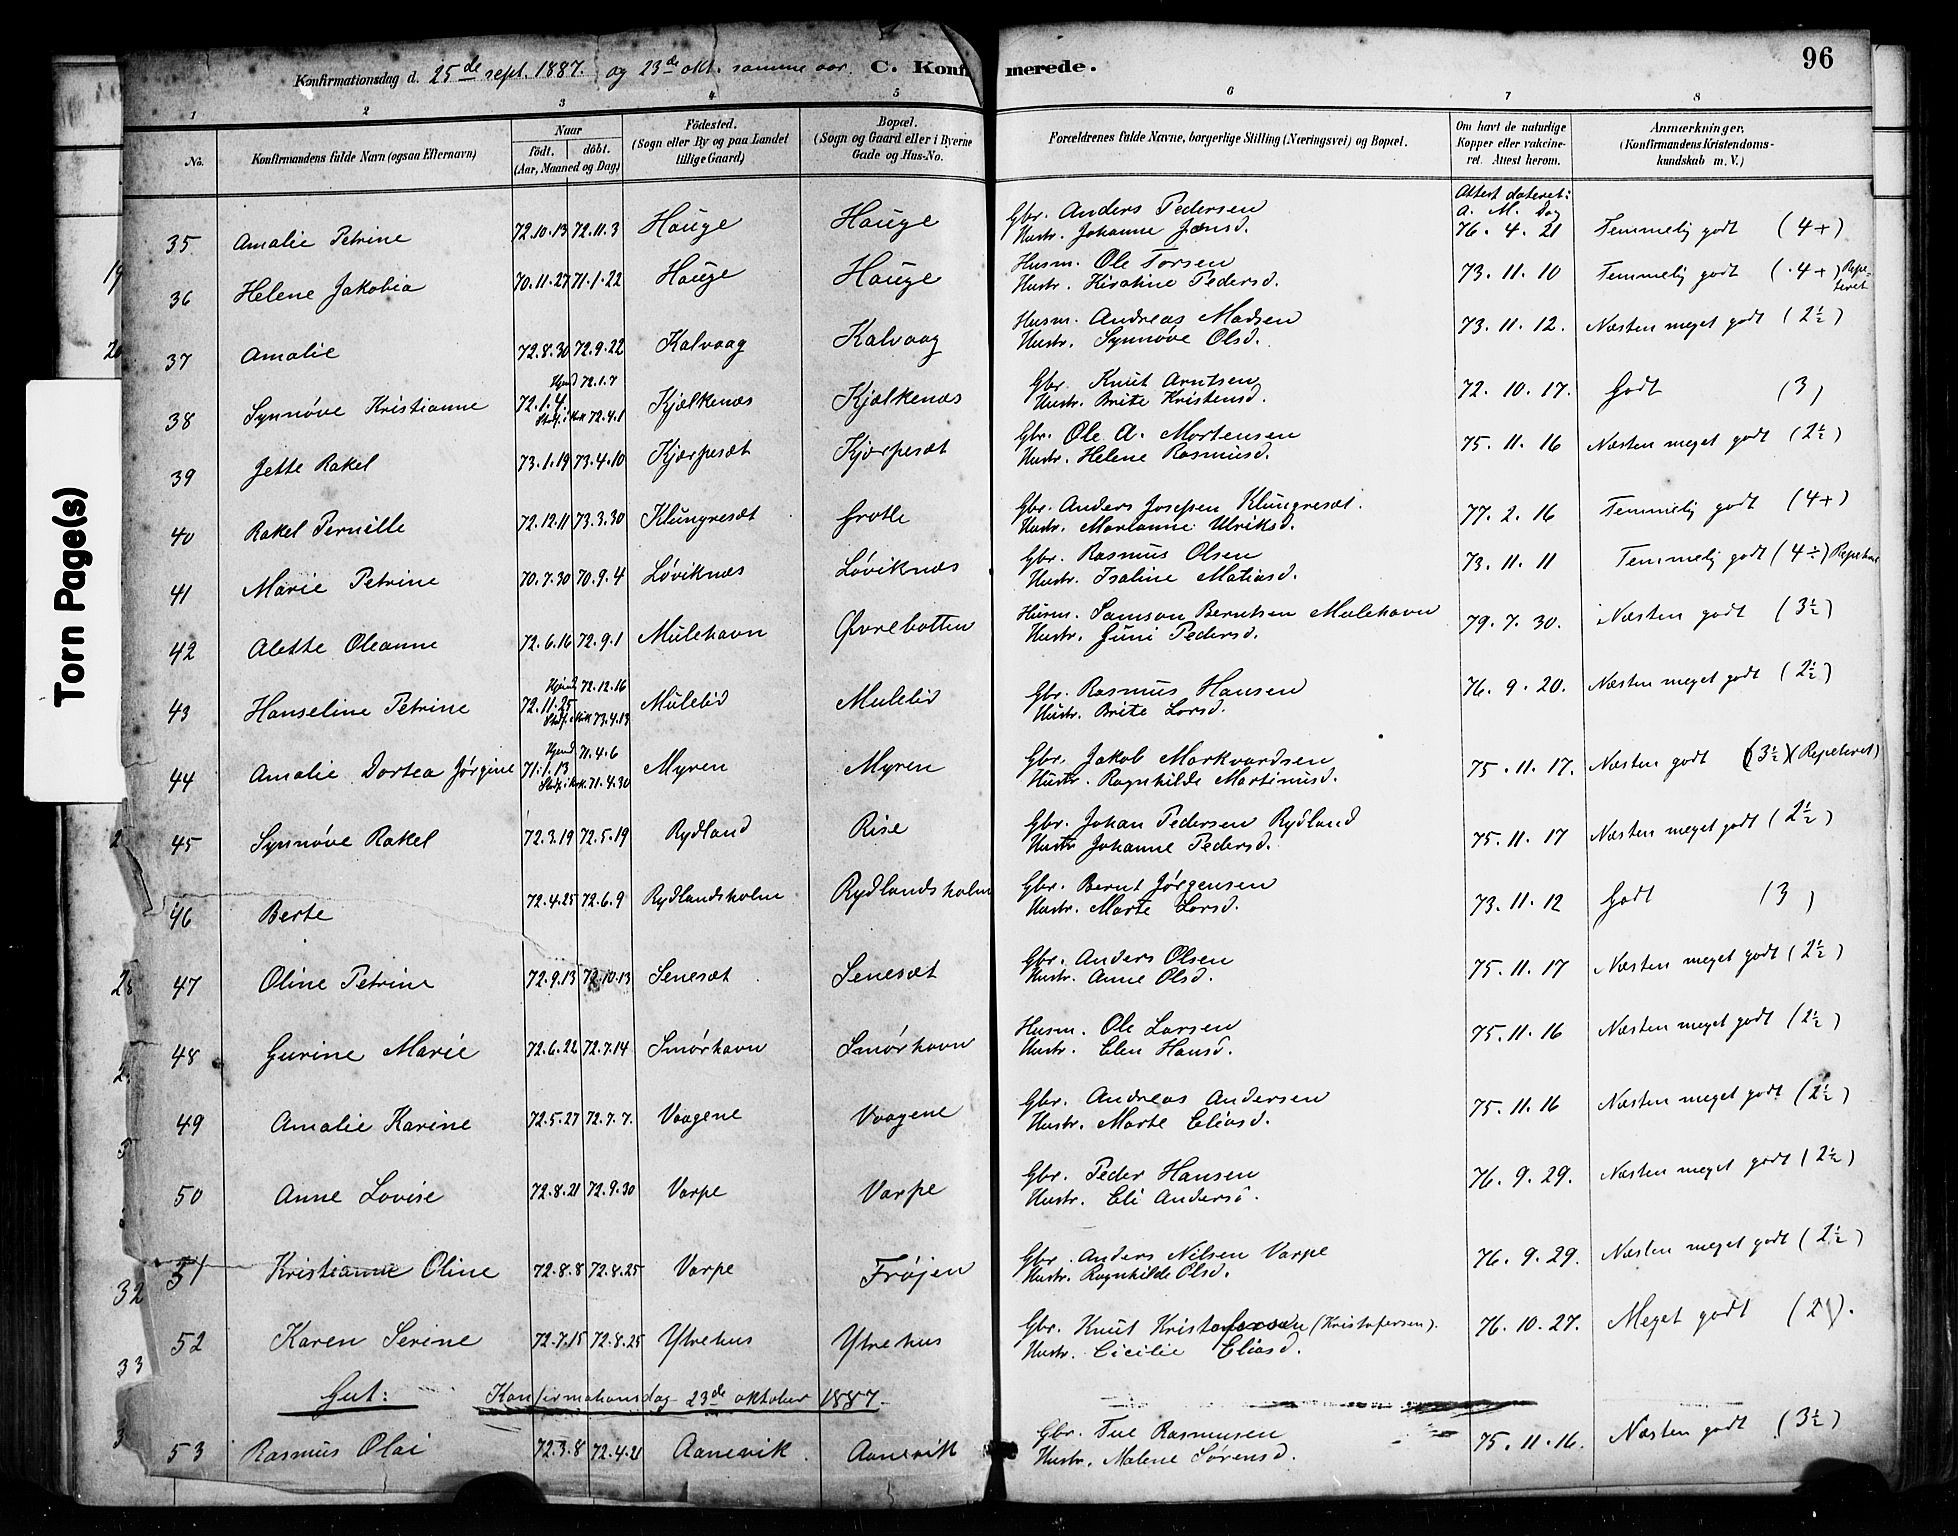 96
Konfirmationsdag d. 25de sept. 1887. og 23de okt. samme aar. C. Konfirmerede.
1 2 3 4 5 6 7 8
No. Konfirmandens fulde Navn (ogsaa Efternavn) Naar födt. döbt. (Aar, Maaned og Dag) Födested. (Sogn eller By og paa Landet tillige Gaard) Bopæl. (Sogn og Gaard eller i Byerne Gade og Hus-No. Forældrenes fulde Navne, borgerlige Stilling (Næringsvei) og Bopæl. Om havt de naturlige Kopper eller vakcineret. Attest herom. Anmærkninger. (Konfirmandens Kristendomskundskab m. V.)
Attest dateret:
A. M. Dag
35 Amalie Petrine 72.10.13 72.11.3 Hauge Hauge Gbr. Anders Pedersen 76. 4. 21 Temmelig godt (4+)
Hustr. Johanne Jansd.
36 Helene Jakobia 70.11.27 71.1.22 Hauge Hauge Husm. Ole Torsen 73. 11. 10 Temmelig godt (4+) Repeteret
Hustr. Kirstine Pedersd.
37 Amalie 72.8.30 72.9.22 Kalvaag Kalvaag Husm. Andreas Madsen 73. 11. 12. Næsten meget godt (2½)
Hustr. Synnøve Olsd.
38 Synnøve Kristianne 72.1.4. Hjemd 72.1.7 Stadf. i Kirk 72.4.1 Kjælkenæs Kjælkenæs Gbr. Knut Arntsen 72. 10. 17. Godt (3)
Hustr. Brite Kristensd.
39 Jette Rakel 73.1.19 73.4.10 Kjærpesæt Kjærpesæt Gbr. Ole A. Mortensen 75. 11. 16 Næsten meget godt (2½)
Hustr. Helene Rasmusd.
40 Rakel Pernille 72.12.11 73.3.30 Klungresæt Grotle Gbr. Anders Josefsen Klungresæt. 77. 2. 16 Temmelig godt (4+)
Hustr. Marianne Ulriksd.
41 Marie Petrine 70.7.30 70.9.4 Løviknæs Løviknæs Gbr. Rasmus Olsen 73. 11. 11 Temmelig godt (4÷) Repeteret
Hustr. Isaline Matiasd.
42 Alette Oleanne 72.6.16 72.9.1 Mulehavn Øvrebotten Husm. Samson Berntsen Mulehavn 79. 7. 30. Næsten godt (3½)
Hustr. Juni Pedersd.
43 Hanseline Petrine 72.11.25 Hjemd 72.12.16 Stadf. i Kirk 73.4.13 Mulelid Mulelid Gbr. Rasmus Hansen 76. 9. 20. Næsten meget godt (2½)
Hustr. Brite Larsd.
44 Amalie Dortea Jørgine 71.1.13 Hjemd 71.4.6 Stadf. i Kirk 71.4.30 Myren Myren Gbr. Jakob Markvardsen 75. 11. 17. Næsten godt (3½) (Repeteret)
Hustr. Ragnhilde Martinusd.
45 Synnøve Rakel 72.3.19 72.5.19 Rydland Rise Gbr. Johan Pedersen Rydland 75. 11. 17 Næsten meget godt (2½)
Hustr Johanne Pedersd.
46 Berte 72.4.25 72.6.9 Rydlandsholm Rydlandsholm Gbr. Bernt Jørgensen 73. 11. 12 Godt (3)
Hustr. Marte Larsd.
47 Oline Petrine 72.9.13 72.10.13 Senesæt Senesæt Gbr. Anders Olsen 75. 11. 17 Næsten meget godt (2½)
Hustr. Anne Olsd.
48 Gurine Marie 72.6.22 72.7.14 Smørhavn Smørhavn Husm. Ole Larsen 75. 11. 16 Næsten meget godt (2½)
Hustr. Elen Hansd.
49 Amalie Karine 72.5.27 72.7.7. Vaagene Vaagene Gbr. Andreas Andersen 75. 11. 16 Næsten meget godt (2½)
Hustr. Marte Eliasd.
50 Anne Lovise 72.8.21 72.9.30 Varpe Varpe Gbr. Peder Hansen 76. 9. 29. Næsten meget godt (2½)
Hustr. Eli Andersd.
51 Kristianne Oline 72.8.8 72.8.25 Varpe Frøjen Gbr. Anders Nilsen Varpe 76. 9. 29. Næsten meget godt (2½)
Hustr. Ragnhilde Olsd.
52 Karen Serine 72.7.15 72.8.25 Ytrehus Ytrehus Gbr. Knut (Kristofersen). 76. 10. 27. Meget godt (2).
Hustr. Cicilie Eliasd.
Gut: Konfirmationsdag 23de oktober 1887.
53 Rasmus Olai 72.3.8 72.4.21 Aanevik Aanevik Gbr. Tue Rasmusen 75. 11. 16. Næsten godt (3½)
Hustr. Malene Sørensd.
Torn Page(s)
32
33